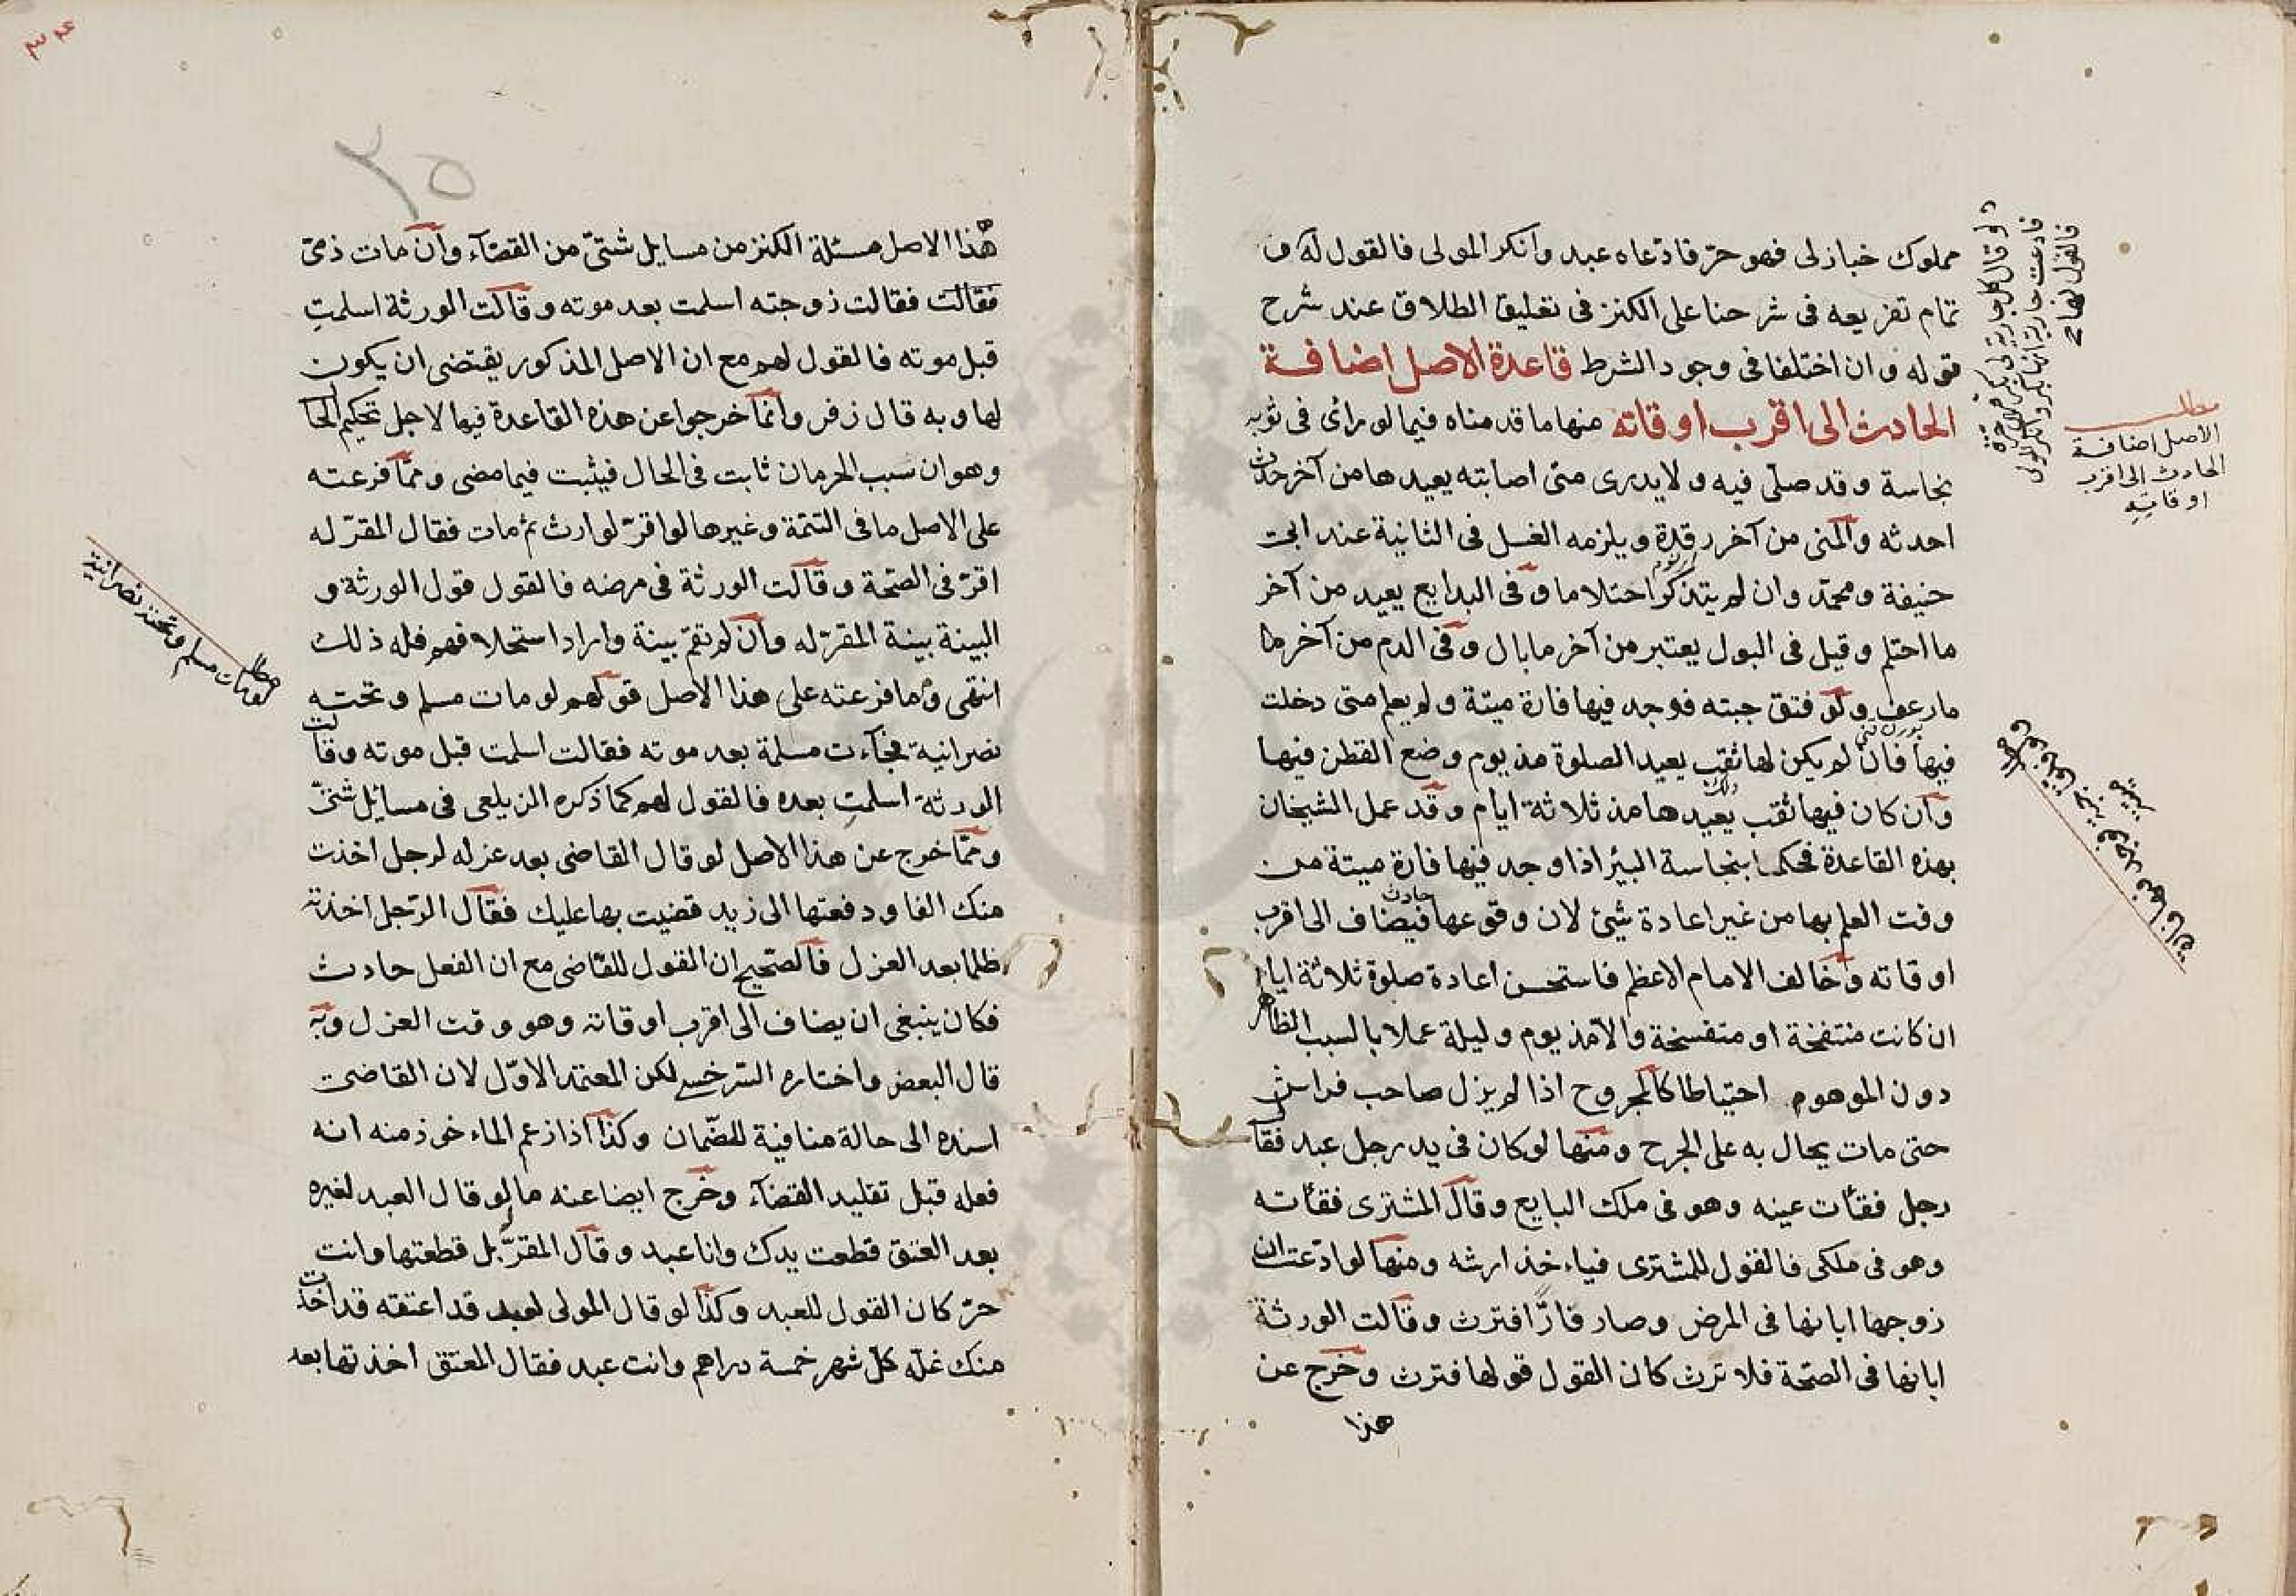 مملوك خباز لى فهو حرّ فادّعاه عبد وانكر المولى فالقول له و
تمام تفريعه فى شرحنا على الكنز فى تعليق الطلاق عند شرح
قوله وان اختلفا فى وجود الشرط قاعدة الاصل اضافة
الحادث الى اقرب اوقاته منها ما قدمناه فيما لو رأى فى ثوبه
نجاسة وقد صلّى فيه ولا يدرى متى اصابته يعيدها من آخر حدث
احدثه والمنى من آخر رقدة ويلزمه الغسل فى الثانية عند ابى
حنيفة ومحمّد وان لم يتذكر احتلاما وفى البدايع يعيد من آخر
ما احتلم وقيل فى البول يعتبر من آخر ما بال وفى الدم من آخر ما
ما رعف ولو فتق جبته فوجد فيها فارة ميتة ولم يعلم متى دخلت
فيها فان لم يكن لها ثقب يعيد الصلوة مذ يوم وضع القطن فيها
وان كان فيها ثقب يعيدها مذ ثلاثة ايام وقد عمل الشيخان
بهذه القاعدة فحكما بنجاسة البئر اذا وجد فيها فارة ميتة من
وقت العلم بها من غير اعادة شيئ لان وقوعها حادث فيضاف الى اقرب
اوقاته وخالف الامام الاعظم فاستحسن اعادة صلوة ثلاثة ايام
ان كانت منتفخة او متفسخة والّا مذ يوم وليلة عملا بالسبب الظاهر
دون الموهوم احتياطا كالمجروح اذا لم يزل صاحب فراش
حتى مات يحال به على الجرح ومنها لو كان فى يد رجل عبد فقال
رجل فقأت عينه وهو فى ملك البايع وقال المشترى فقأته
وهو فى ملكى فالقول للمشترى فياءخذ ارشه ومنها لو ادّعت ان
زوجها ابانها فى المرض وصار فارّا فترث وقالت الورثة
ابانها فى الصّحة فلا ترث كان القول قولها فترث وخرج عن
هذا
مطلب
الاصل اضافة
الحادث الى اقرب
اوقاته
هذا الاصل مسئلة الكنز من مسايل شتىّ من القضآء وان مات ذمىّ
فقالت فقالت زوجته اسلمت بعد موته وقالت الورثة اسلمتِ
قبل موته فالقول لهم مع ان الاصل المذكور يقتضى ان يكون
لها وبه قال زفر وانما خرجوا عن هذه القاعدة فيها لاجل تحكيم الحال
وهو ان سبب الحرمان ثابت فى الحال فيثبت فيما مضى وممّا فرعته
على الاصل ما فى التتمّة وغيرها لو اقرّ لوارث ثم مات فقال المقرّ له
اقرّ فى الصّحة وقالت الورثة فى مرضه فالقول قول الورثة و
البينة بينة المقرّ له وان لم تقم بينة واراد استحلافهم فله ذلك
انتهى وما فرعته على هذا الاصل قولهم لو مات مسلم وتحته
نصرانية فجآءت مسلمة بعد موته فقالت اسلمت قبل موته وقالت
الورثة اسلمتِ بعده فالقول لهم كما ذكره الزيلعى فى مسائل شتىّ
وممّا خرج عن هذا الاصل لو قال القاضى بعد عزله لرجل اخذت
منك الفا ودفعتها الى زيد قضيت بها عليك فقال الرّجل اخذته
ظلما بعد العزل فالصّحيح ان القول للقاضى مع ان الفعل حادث
فكان ينبغى ان يضاف الى اقرب اوقاته وهو وقت العزل وبه
قال البعض واختاره السّرخسى لكن المعتمد الاوّل لان القاضى
اسنده الى حالة منافية للضّمان وكذا اذا زعم الماءخوذ منه انه
فعله قبل تقليد القضآء وخرج ايضا عنه ما لو قال العبد لغيره
بعد العتق قطعت يدك وانا عبد وقال المقرّ بل قطعتها وانت
حرّ كان القول للعبد وكذا لو قال المولى لعبد قد اعتقه قد اخذت
منك غلّه كل شهر خمسة دراهم وانت عبد فقال المعتق اخذتها بعد
مطلب
لو مات مسلم وتحته نصرانية
٢٥
٣٤